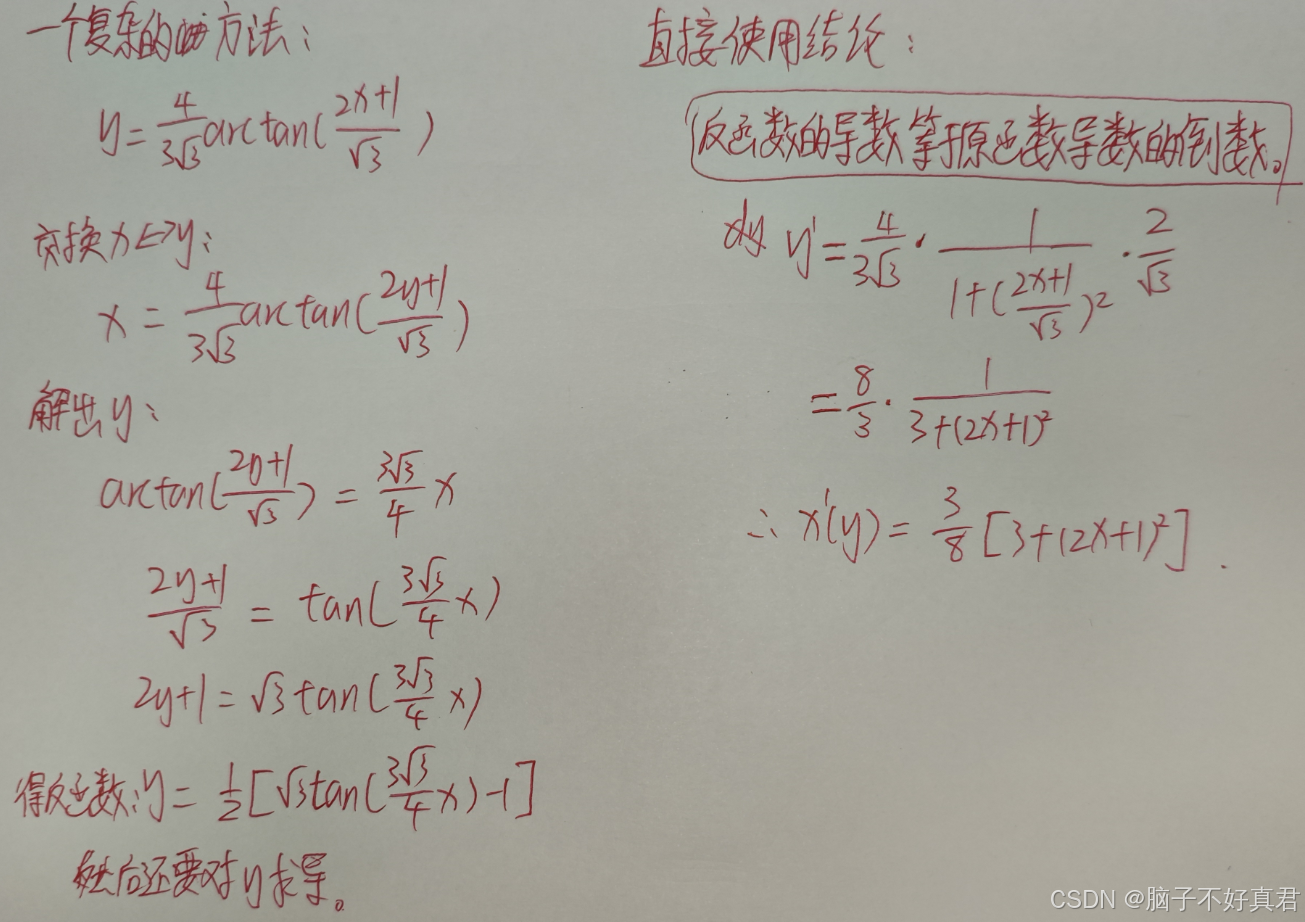 一个复杂的方法：
y=4/(3√3) arctan((2x+1)/√3)
交换x<->y：
x=4/(3√3) arctan((2y+1)/√3)
解出y：
arctan((2y+1)/√3)=(3√3/4)x
(2y+1)/√3=tan((3√3/4)x)
2y+1=√3tan((3√3/4)x)
得反函数：y=1/2[√3tan((3√3/4)x)-1]
然后还要对y求导。
直接使用结论：
反函数的导数等于原函数导数的倒数。
y'=4/(3√3)·1/(1+((2x+1)/√3)²)·2/√3
=8/3·1/(3+(2x+1)²)
∴x'(y)=3/8[3+(2x+1)²].
CSDN @脑子不好真君